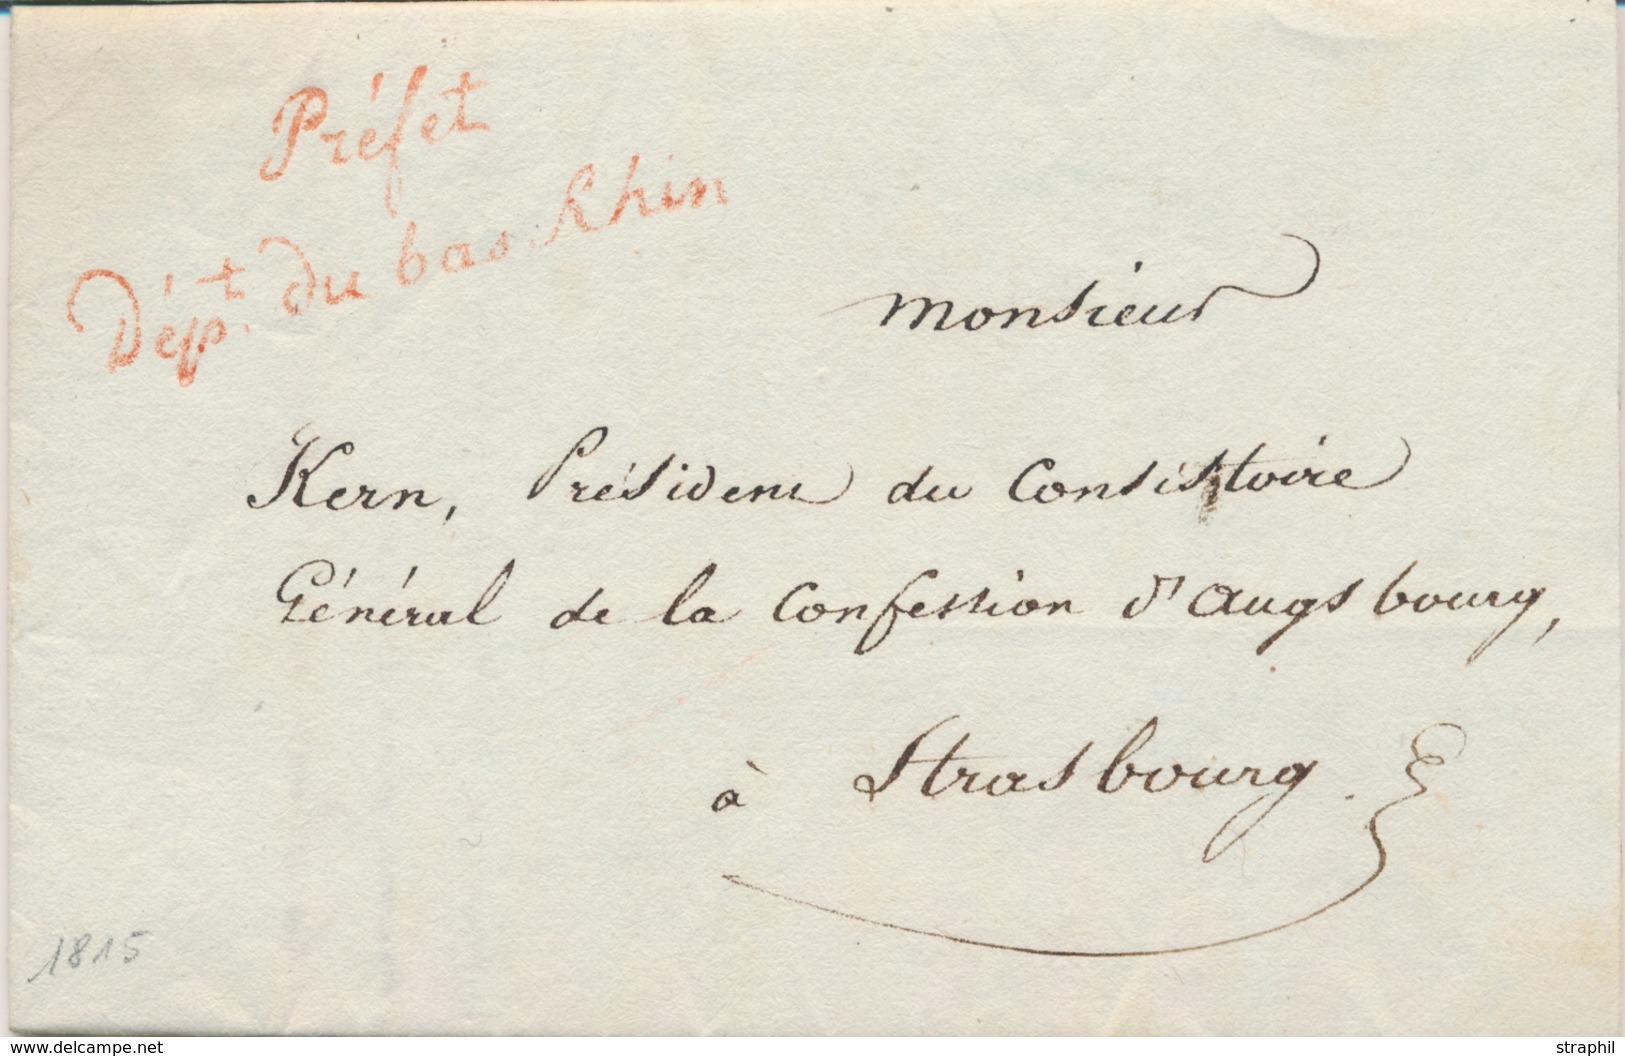 Préfet
Dépt. du bas-Rhin
Monsieur
Kern, Président du Consistoire
Général de la Confession d'Augsbourg,
à Strasbourg.
1815
www.delcampe.net
straphil